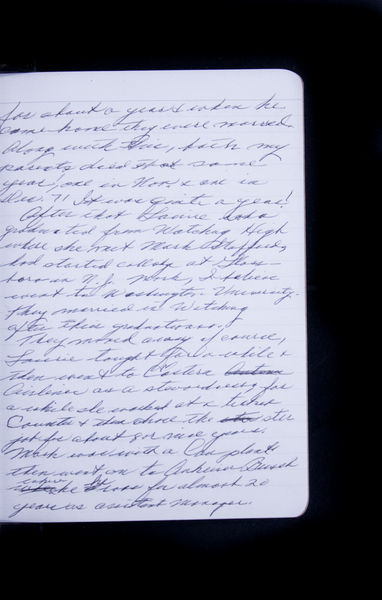 for about a year & when he
came home they were married.
Along with this, both my
parents died that same
year, one in Nov. & one in
Dec. 71 It was quite a year!
After that Laurie had
graduated from Watchung High
where she met Mark
had started college at Glass-
boro in N.J. Mark, I believe
went to Washington University.
They married in Watchung
after their graduations.
They moved away of course,
Laurie taught for a while &
then went to Eastern
Airlines as a stewardess for
a while she worked at a ticket
Counter & then chose the ster
job for about 8 or nine years.
Mark was with a Can plant
then went on to Anheuser Busch
where he was for almost 20
years as assistant manager.